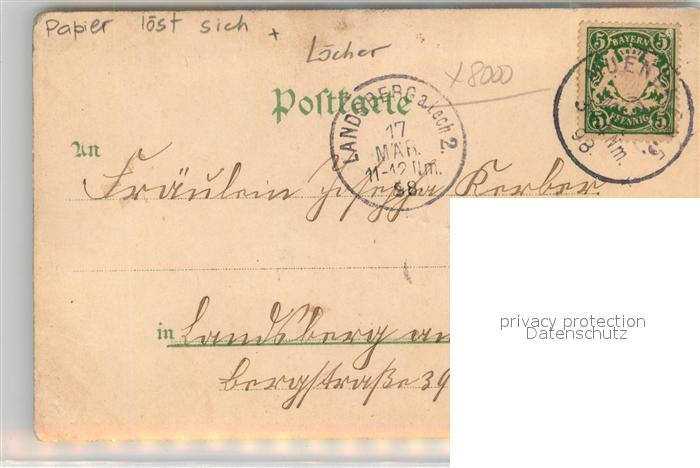 Papier löst sich + Löcher
x8000
Postkarte
BAYERN
5 5
5 PFENNIG 5
LANDSBERG a. Lech 2.
17
MÄR.
11-12 Nm.
98
UEN
5.
3 Nm.
98.
An
Fräulein Josepha Kerber
in Landsberg am
Bergstraße 39
privacy protection
Datenschutz